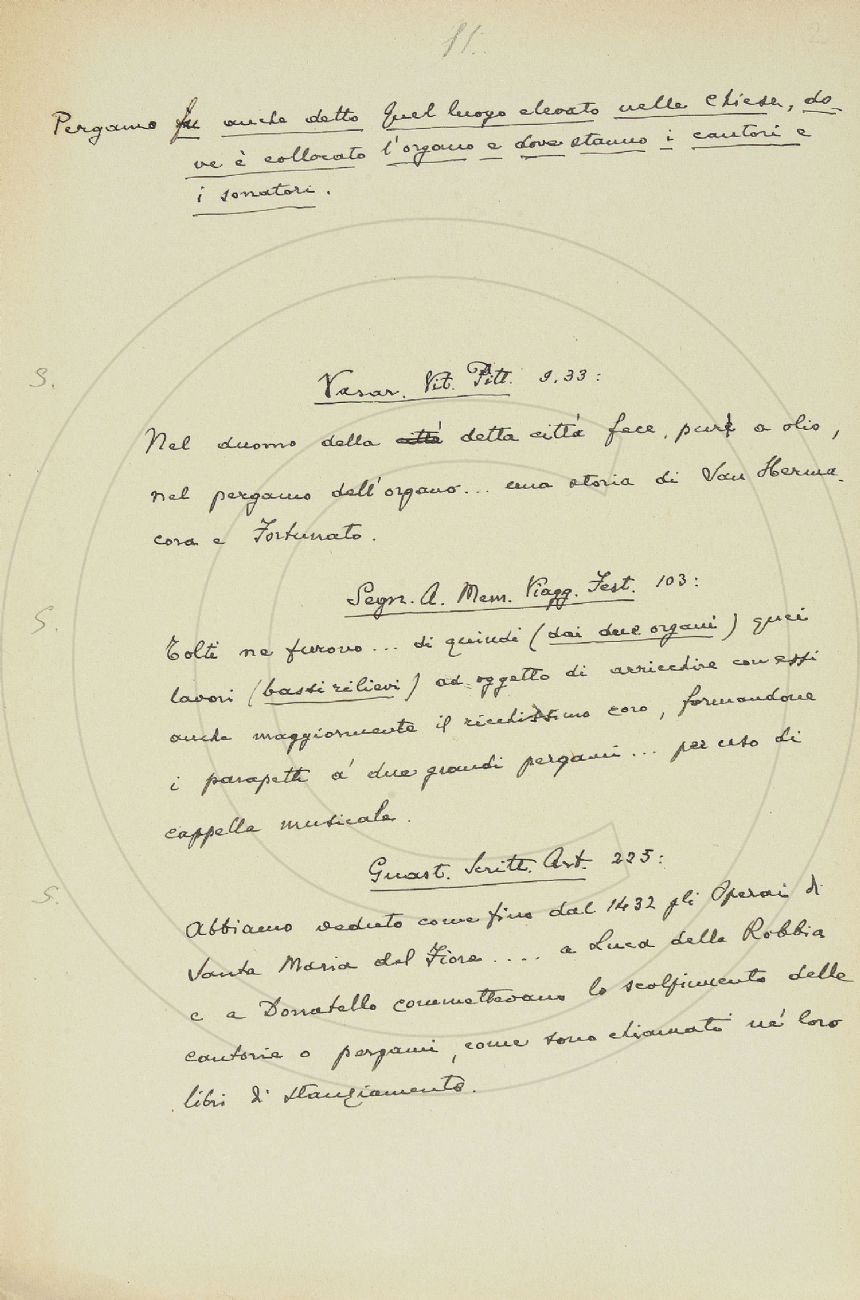 11.
2
Pergamo fu anche detto Quel luogo elevato nelle chiese, do-
ve è collocato l'organo e dove stanno i cantori e
i sonatori.
S.
Vasar. Vit. Pitt. 9.33:
Nel duomo della città detta città fece, pure a olio,
nel pergamo dell'organo... una storia di San Herma-
cora e Fortunato.
Segn. A. Mem. Viagg. Fest. 103:
S.
Tolti ne furono... di quindi (dai due organi) quei
lavori (bassi rilievi) ad oggetto di arricchire con essi
anche maggiormente il ricchissimo coro, formandone
i parapetti a' due grandi pergami... per uso di
cappella musicale.
Guast. Scritt. Art. 225:
S.
Abbiamo veduto come fino dal 1432 gli Operai di
Santa Maria del Fiore.... a Luca della Robbia
e a Donatello commettevano lo scolpimento delle
cantorie o pergami, come sono chiamati ne' loro
libri di stanziamento.